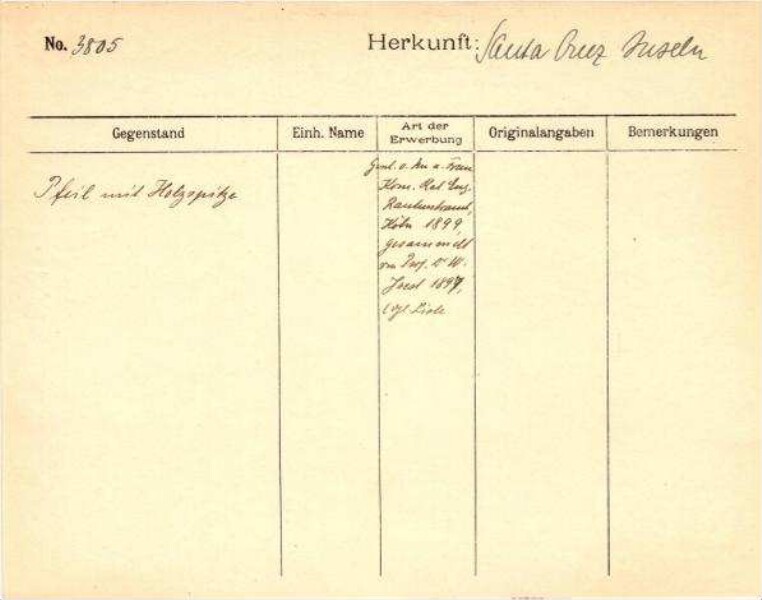 No. 3805
Herkunft: Santa Cruz Inseln
Gegenstand
Einh. Name
Art der Erwerbung
Originalangaben
Bemerkungen
Pfeil mit Holzspitze
Gesch. v. Frau
Kom. Rat Eug.
Rautenstrauch,
Köln 1899,
gesammelt
von Prof. Dr W.
Joest 1897,
Liste